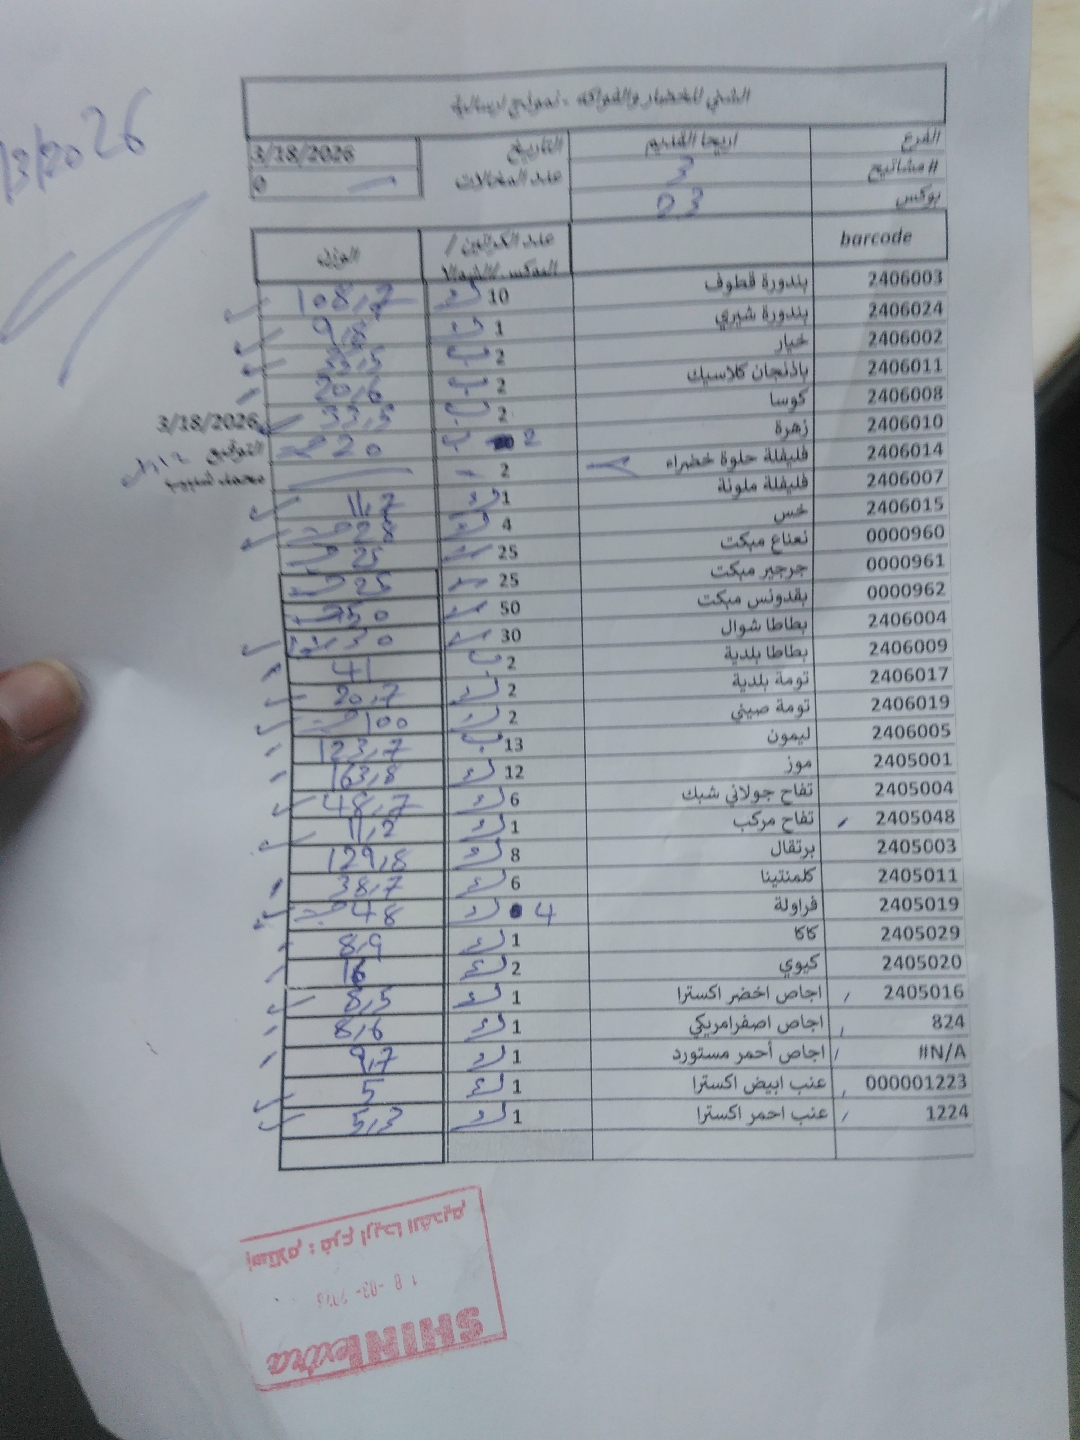 /3/2026
الشني للخضار والفواكه - نموذج ارسالية
الفرع اريحا القديم التاريخ 3/18/2026
# مشاتيح 3 عدد المحالات 0
بوكس 23
barcode عدد الكراتين / البوكس/الشوال الوزن
2406003 بندورة قطوف 10 108,7
2406024 بندورة شيري 1 9,8
2406002 خيار 2 33,5
2406011 باذنجان كلاسيك 2 20,6
2406008 كوسا 2 33,5
2406010 زهرة 2 20
2406014 فليفلة حلوة خضراء 2
2406007 فليفلة ملونة 1 11,7
2406015 خس 4 28
0000960 نعناع مبكت 25 25
0000961 جرجير مبكت 25 25
0000962 بقدونس مبكت 50 50
2406004 بطاطا شوال 30 30
2406009 بطاطا بلدية 2 41
2406017 تومة بلدية 2 20,7
2406019 تومة صيني 2 100
2406005 ليمون 13 123,7
2405001 موز 12 163,8
2405004 تفاح جولاني شبك 6 48,7
2405048 تفاح مركب 1 11,2
2405003 برتقال 8 129,8
2405011 كلمنتينا 6 38,7
2405019 فراولة 4 48
2405029 كاكا 1 8,9
2405020 كيوي 2 16
2405016 اجاص اخضر اكسترا 1 8,5
824 اجاص اصفرامريكي 1 8,6
#N/A اجاص أحمر مستورد 1 9,7
000001223 عنب ابيض اكسترا 1 5
1224 عنب احمر اكسترا 1 5,3
3/18/2026
التوقيع
محمد شبيب
إستلام : فرع اريحا القديم
18-03-2026
SHINI extra